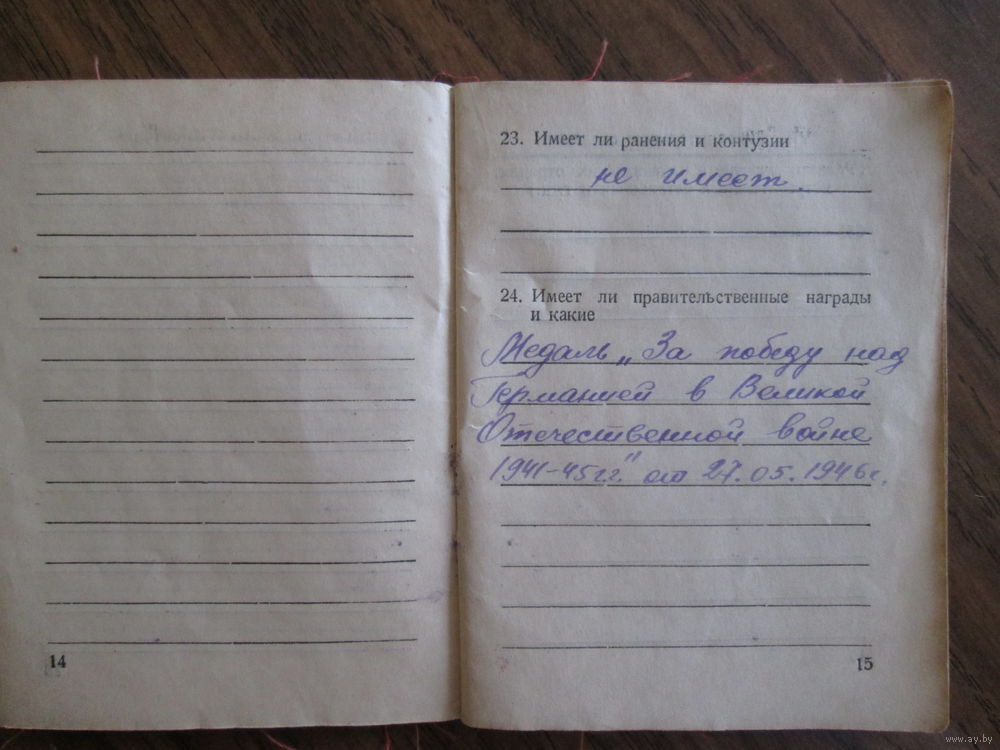 23. Имеет ли ранения и контузии
не имеет.
24. Имеет ли правительственные награды
и какие
Медаль „За победу над
Германией в Великой
Отечественной войне
1941-45гг." от 27.05.1946г.
14
15
www.ay.by